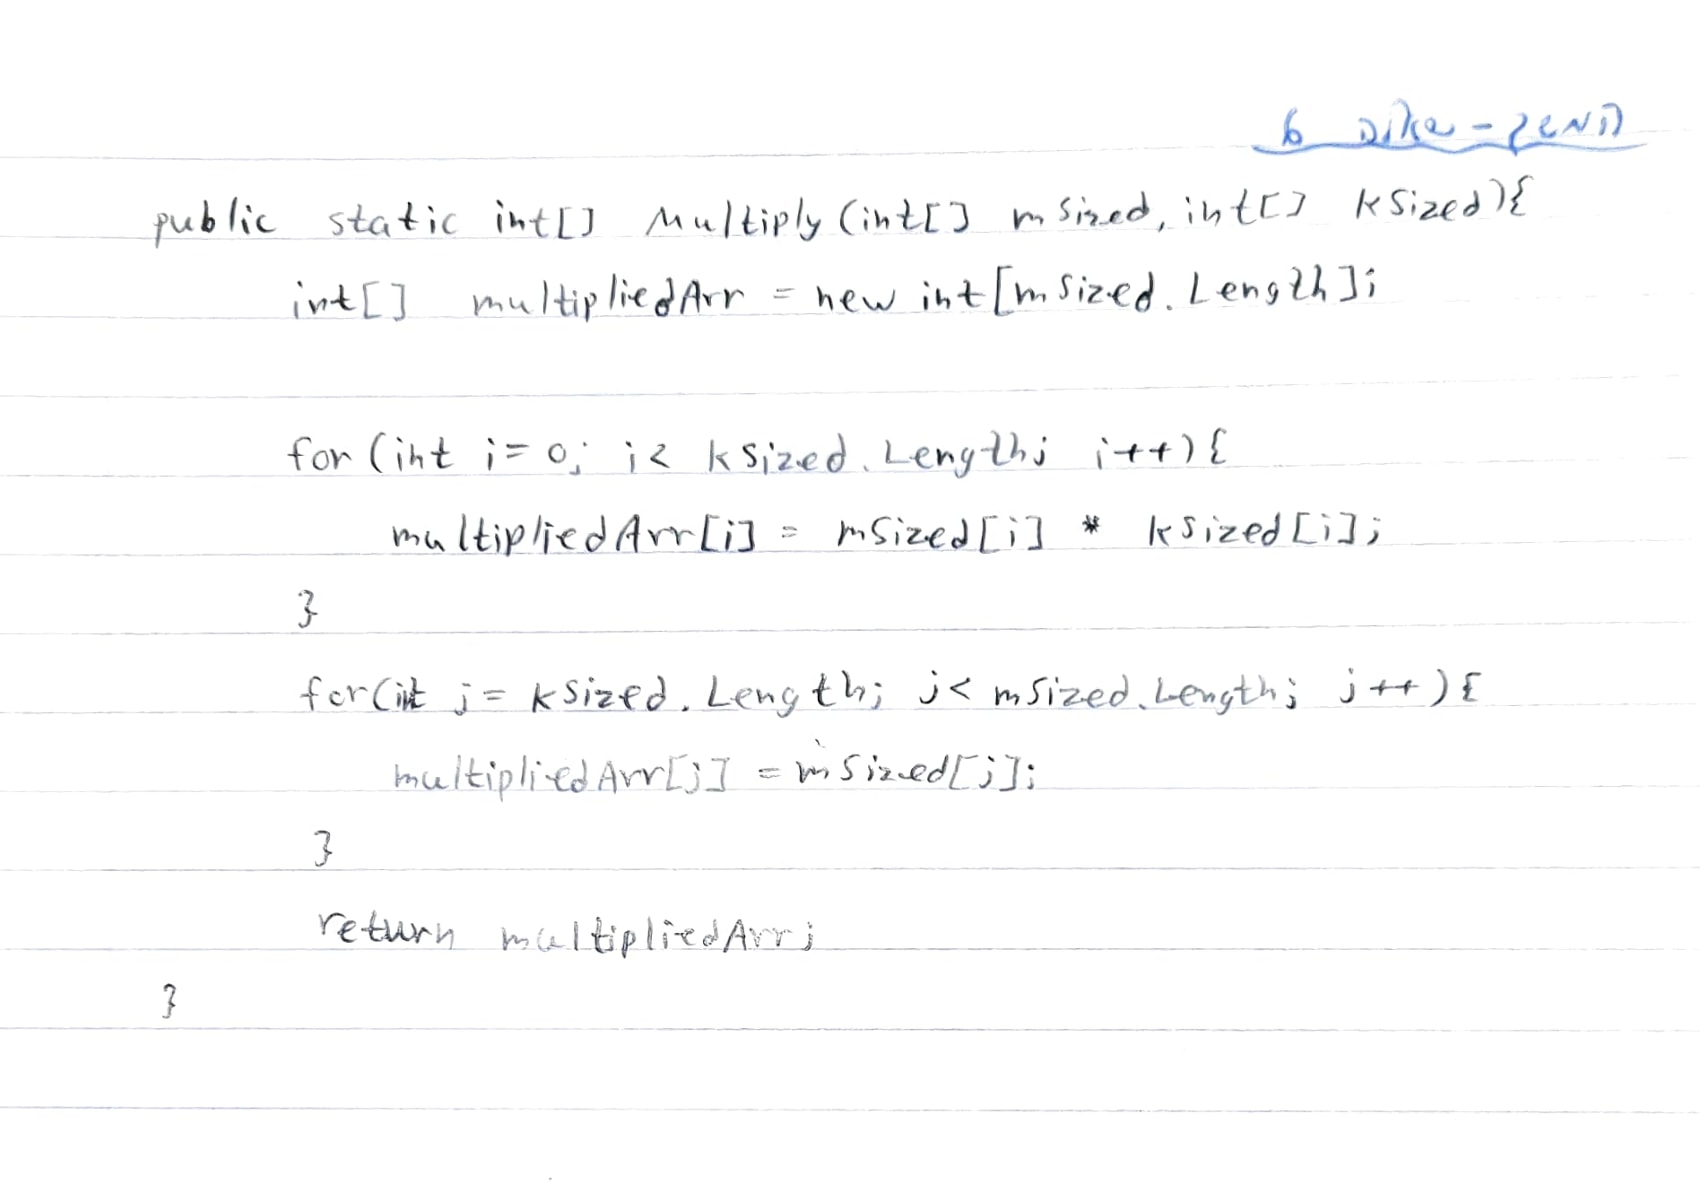 המשך - שאלה 6
public static int[] Multiply (int[] mSized, int[] kSized){
int[] multipliedArr = new int[mSized.Length];
for (int i = 0; i < kSized.Length; i++){
multipliedArr[i] = mSized[i] * kSized[i];
}
for(int j = kSized.Length; j < mSized.Length; j++){
multipliedArr[j] = mSized[j];
}
return multipliedArr;
}